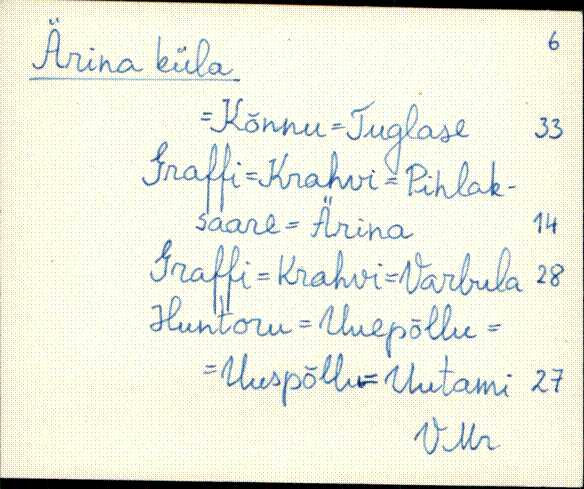 6
Ärina küla
=Kõnnu=Tuglase 33
Graffi=Krahvi=Pihlak-
saare=Ärina 14
Graffi=Krahvi=Varbula 28
Huntoru=Uuepõllu=
=Uuspõllu=Uutami 27
VMr